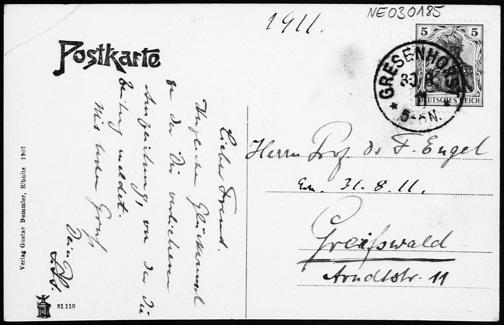 1911.
NE030185
Postkarte
5 5
DEUTSCHES REICH
GRESENHORST
5-6N.
Lieber Freund.
Herzlichen Glückwunsch
zu der Dir verliehenen
Auszeichnung, von der die
Zeitung meldet.
Mit bestem Gruß
Dein
Herrn Prof. Dr F. Engel
En. 31.8.11.
Greifswald
Arndtstr. 11
Verlag Gustav Demmler, Ribnitz 1907
31110